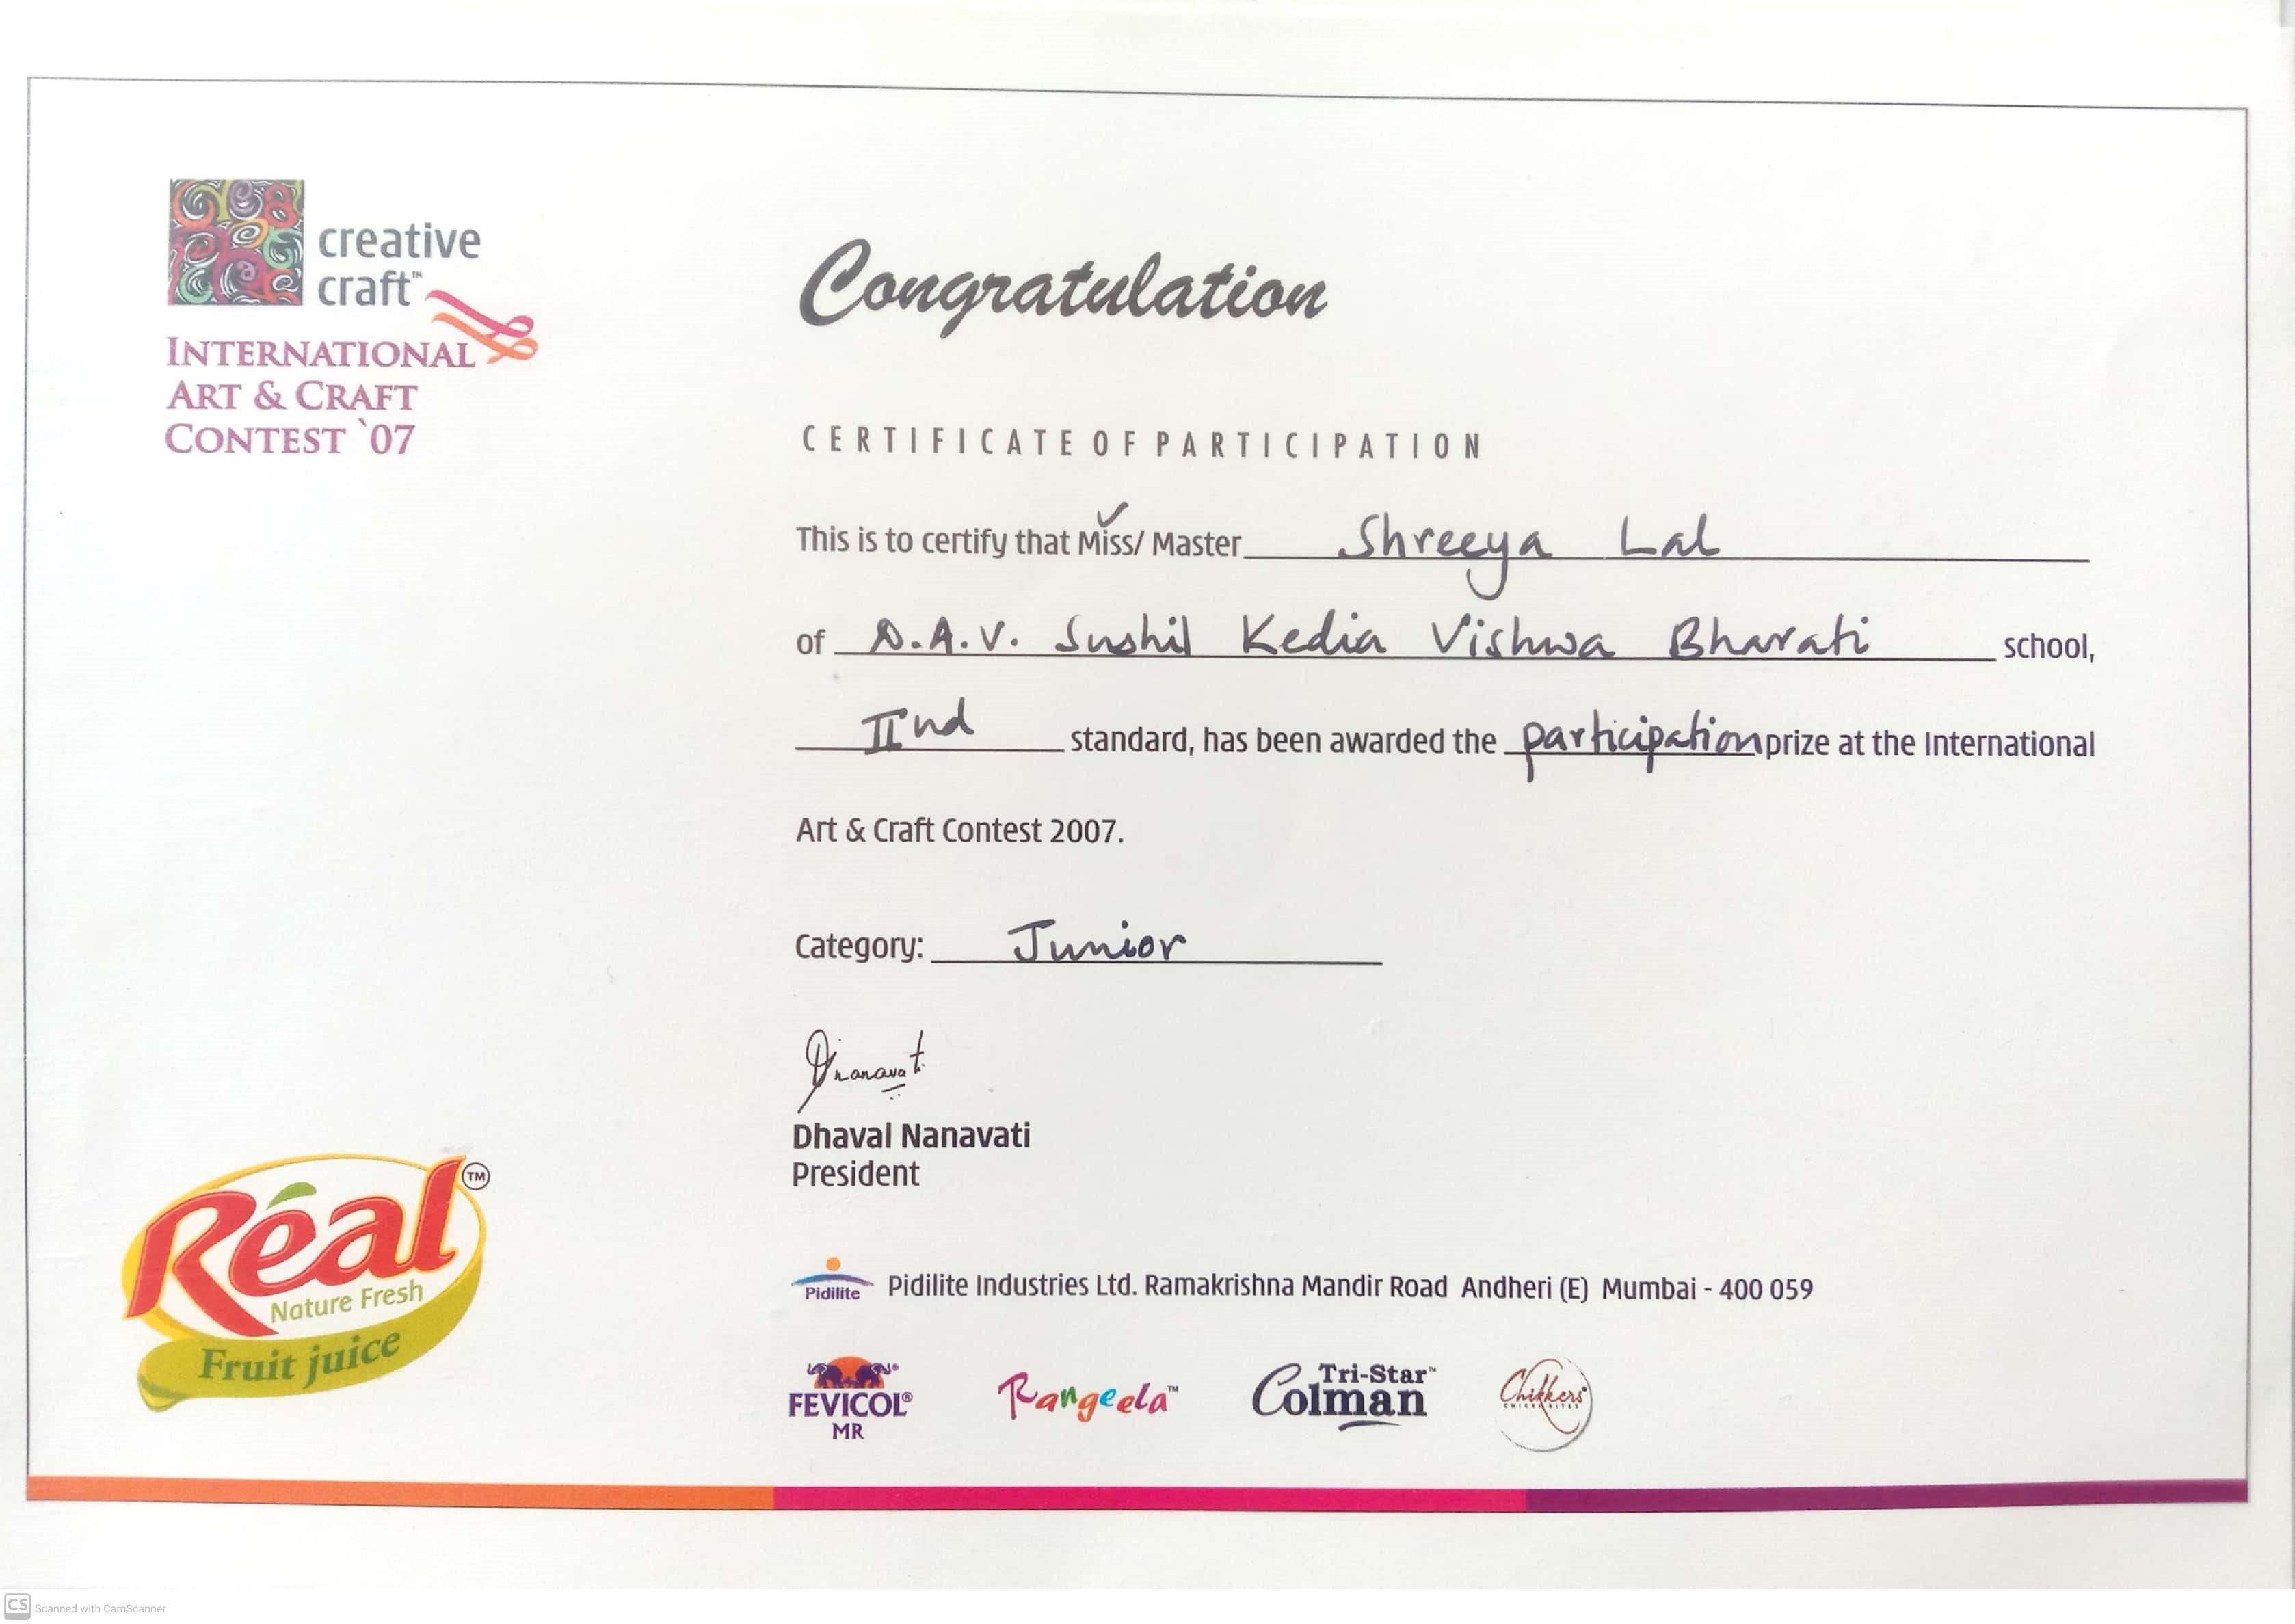 creative
craft™
INTERNATIONAL
ART & CRAFT
CONTEST `07
Congratulation
CERTIFICATE OF PARTICIPATION
This is to certify that Miss/ Master Shreeya Lal
of D.A.V. Sushil Kedia Vishwa Bharati school,
IInd standard, has been awarded the participation prize at the International
Art & Craft Contest 2007.
Category: Junior
Dnanavati
Dhaval Nanavati
President
Réal ™
Nature Fresh
Fruit juice
Pidilite Pidilite Industries Ltd. Ramakrishna Mandir Road Andheri (E) Mumbai - 400 059
FEVICOL®
MR
Rangeela™
Tri-Star™
Colman
Chikkers
CS Scanned with CamScanner